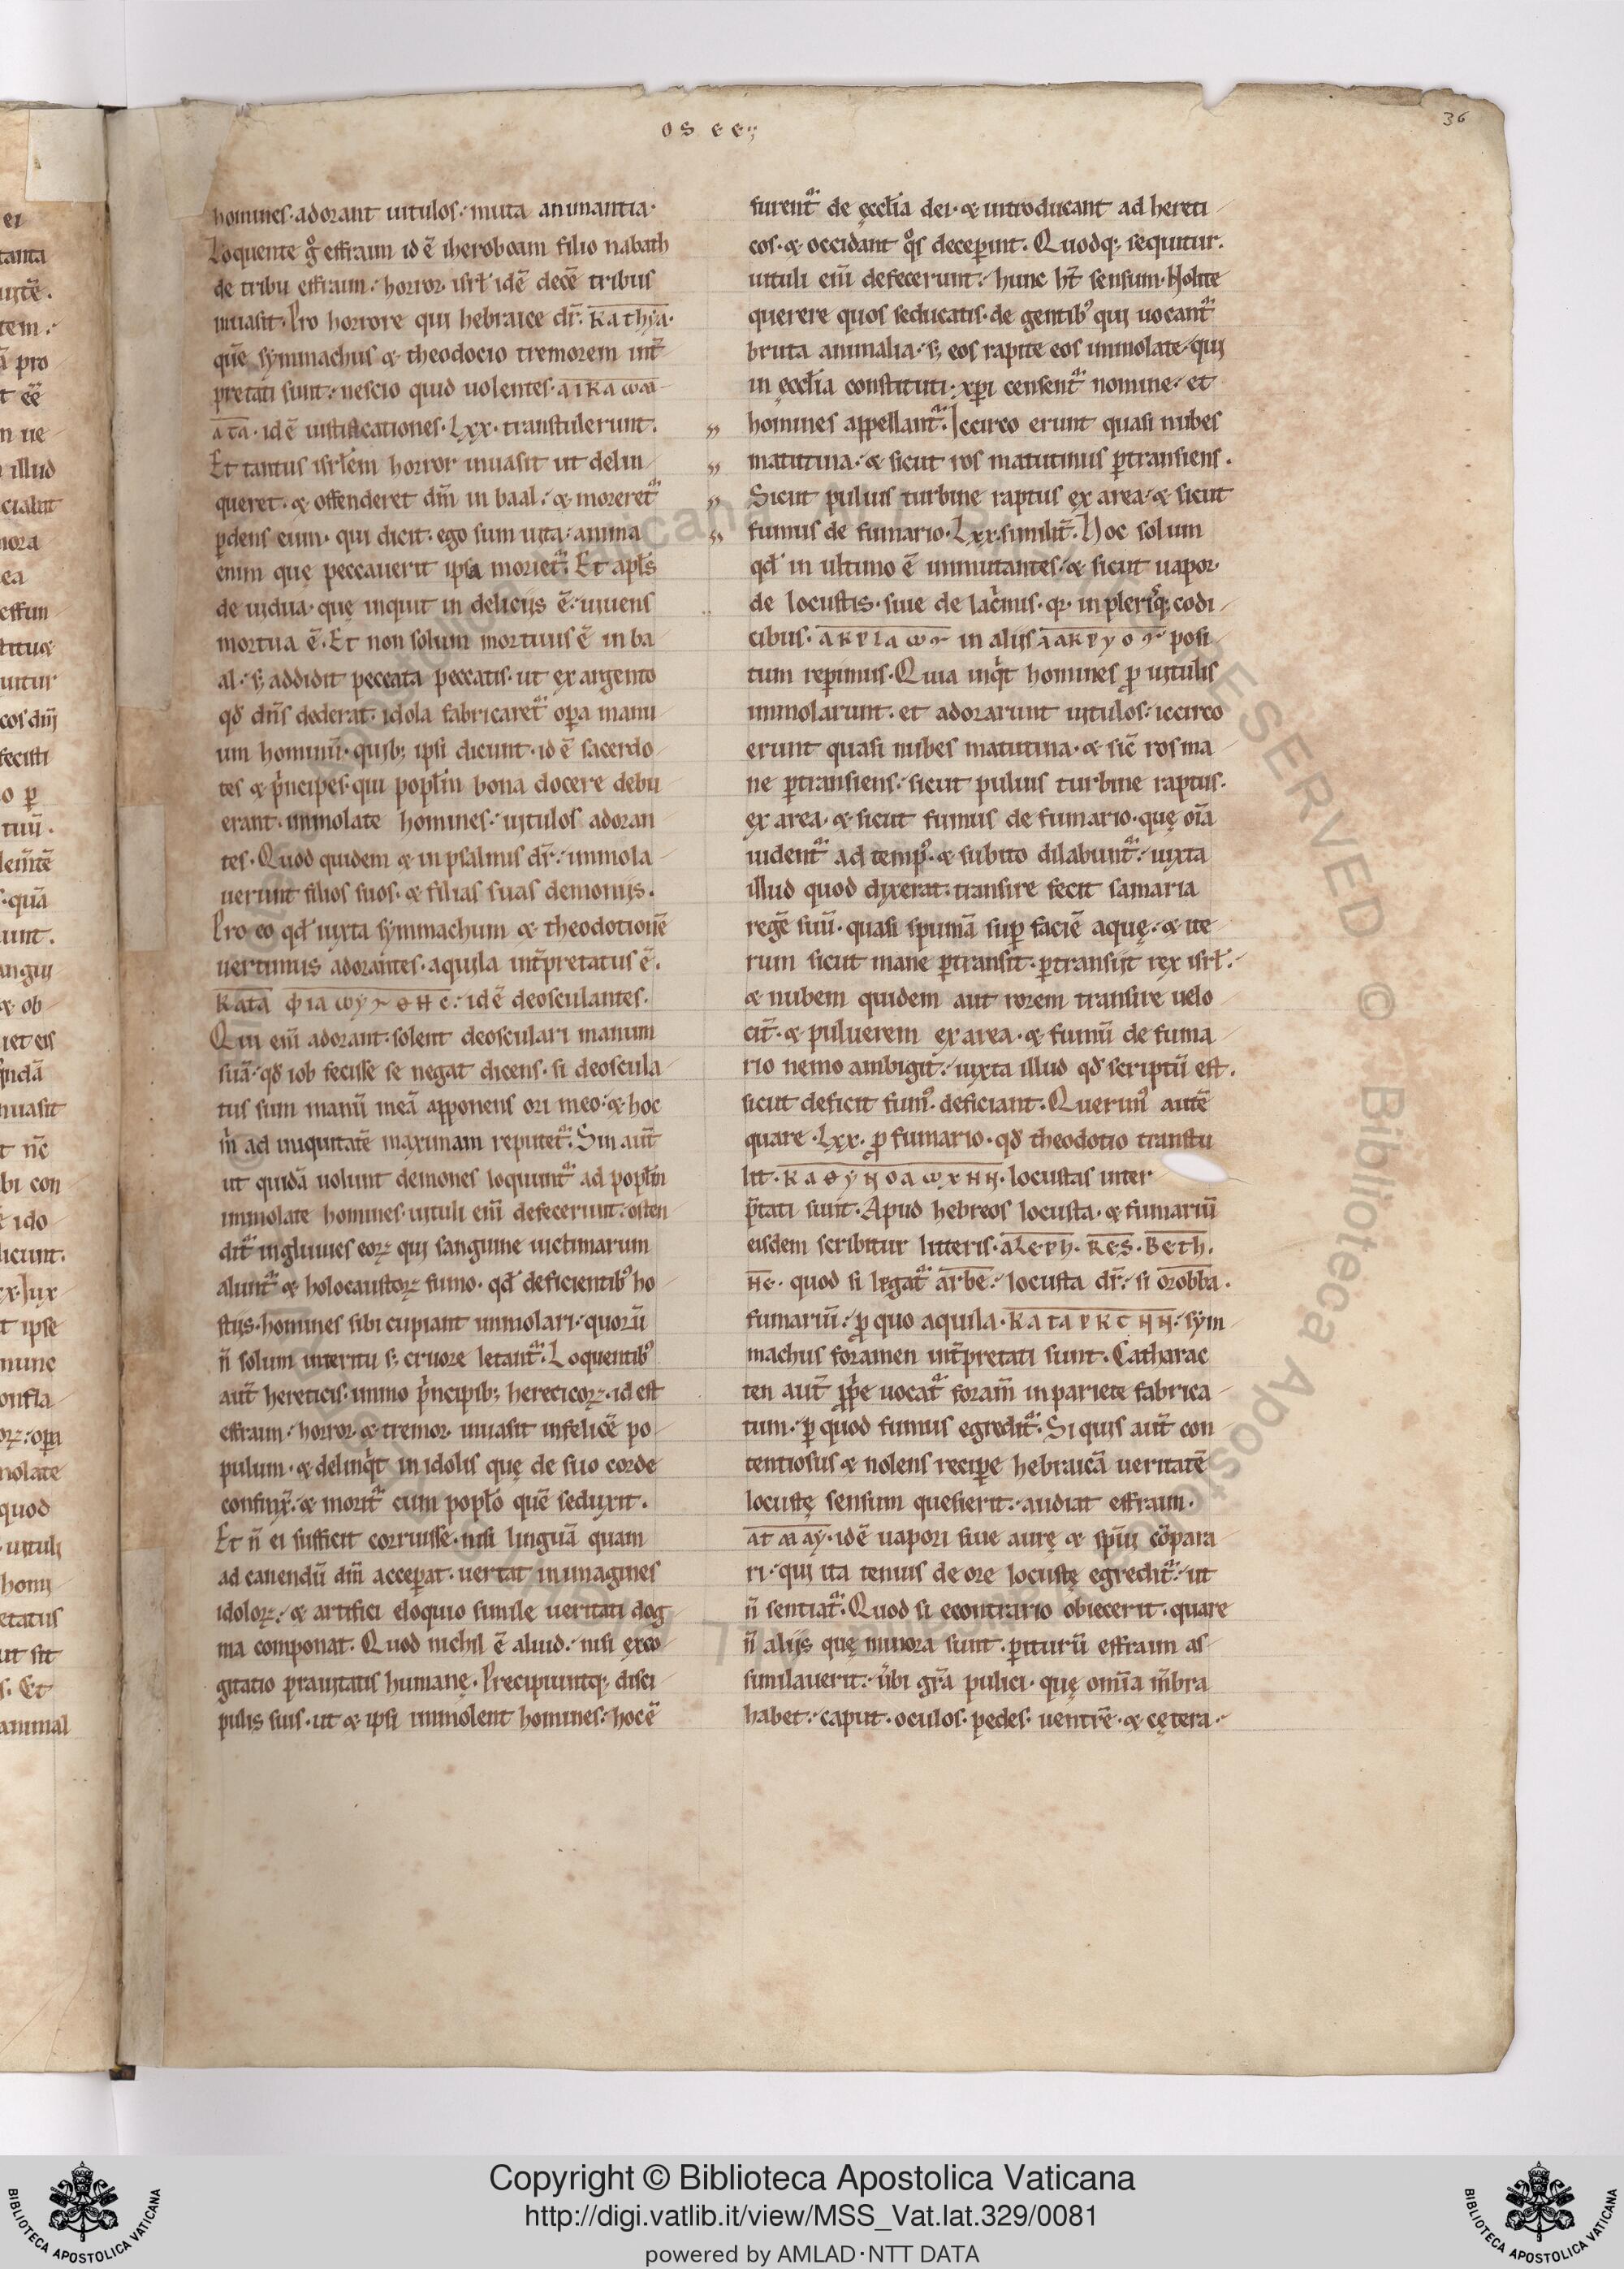 OSEE;
36
homines· adorant uitulos: muta animantia·
Loquente g̊ effraim id ē iheroboam filio nabath
de tribu effraim: horror· isrł idē decē tribus
inuasit· Pro horrore qui hebraice dr̄· Rathia·
quē symmachus & theodocio tremorem int̄
pretati sunt: nescio quid uolentes·
id ē iustificationes· Lxx· transtulerunt·
Et tantus isrłem horror inuasit ut delin
queret· & offenderet dm̄ in baal: & moreret᷑
ꝑdens eum· qui dicit· ego sum uita: anima
enim quę peccauerit ipsa moriet᷑· Et apłs
de uidua· quę inquit in delicijs ē: uiuens
mortua ē· Et non solum mortuus ē in ba
al· s; addidit peccata peccatis· ut ex argento
qđ dn̄s dederat· idola fabricaret᷑ oꝑa manu
um hominū· quib; ipsi dicunt· id ē sacerdo
tes & p̄ncipes· qui popłm bona docere debu
erant· immolate homines: uitulos adoran
tes· Quod quidem & in psalmis dr̄: immola
uerunt filios suos· & filias suas demonijs·
Pro eo qđ iuxta symmachum & theodotionē
uertimus adorantes· aquila int̄pretatus ē·
ΚΑΤΑ ΦΙΑ id ē deosculantes·
Qui eni᷑ adorant· solent deosculari manum
suā· qđ iob fecisse se negat dicens· si deoscula
tus sum manū meā apponens ori meo: & hoc
m̄ ad iniquitatē maximam reputet᷑· Sin aut̄
ut quidā uolunt demones loquunt᷑ ad popłm
immolate homines· uituli enī defecerunt: osten
dit᷑ ingluuies eoꝝ qui sanguine uictimarum
alunt᷑ & holocaustoꝝ fumo· qđ deficientib᷒ ho
stijs· homines sibi cupiant immolari· quorū
n̄ solum interitu s; cruore letant᷑· Loquentib᷒
aut̄ hereticis· immo p̄ncipib; hereticoꝝ· id est
effraim: horror· & tremor· inuasit infelicē po
pulum· & delinq̄t in idolis quę de suo corde
confinx̄· & morit᷑ cum popło quē seduxit·
Et n̄ ei sufficit corruisse· nisi linguā quam
ad canendū dm̄ acceꝑat· uertat in imagines
idoloꝝ: & artifici eloquio simile ueritati dog
ma componat· Quod nichil ē aliud: nisi exco
gitatio prauitatis humanę· Precipiuntq; disci
pulis suis· ut & ipsi immolent homines: hoc ē
furent᷑ de ęccłia dei· & introducant ad hereti
cos· & occidant q̊s deceꝑint· Quodq; sequitur·
uituli enī defecerunt: hunc ht̄ sensum· Nolite
querere quos seducatis· de gentib᷒ qui uocant᷑
bruta animalia· s; eos rapite eos immolate· qui
in ęccłia constituti· xp̄i censent᷑ nomine: et
homines appellant᷑· Iccirco erunt quasi nubes
matutina: & sicut ros matutinus ꝑtransiens·
Sicut puluis turbine raptus ex area· & sicut
fumus de fumario· Lxx· similit̄· Hoc solum
qđ in ultimo ē immutantes: & sicut uapor·
de locustis· siue de lac̄mis· qꝛ in pleriq̊; codi
cibus· in alijs posi
tum reꝑimus· Quia inq̄t homines ꝓ uitulis
immolarunt· et adorarunt uitulos: iccirco
erunt quasi nubes matutina· & sic̄ ros ma
ne ꝑtransiens: sicut puluis turbine raptus·
ex area· & sicut fumus de fumario· quę oīa
uident᷑ ad temp᷒· & subito dilabunt᷑: iuxta
illud quod dixerat: transire fecit samaria
regē suū· quasi spumā suꝑ faciē aquę: & ite
rum sicut mane ꝑtransit· ꝑtransijt rex isrł:
& nubem quidem aut rorem transire uelo
cit̄· & puluerem ex area· & fumū de fuma
rio nemo ambigit: iuxta illud qđ scriptū est·
sicut deficit fum᷒· deficiant· Querim᷒ autē
quare· Lxx· ꝓ fumario· qđ theodotio transtu
lit· locustas inter
p̄tati sunt· Apud hebreos locusta· & fumariū
eisdem scribitur litteris· ALEPH· RES· BETH·
HE· quod si legat᷑ arbe: locusta dr̄: si orobba·
fumariū: ꝓ quo aquila· sym
machus foramen int̄pretati sunt· Catharac
ten aut̄ ꝓp̄e uocat᷑ foram̄ in pariete fabrica
tum: ꝑ quod fumus egredit᷑· Si quis aut̄ con
tentiosus & nolens reciꝑe hebraicā ueritatē
locustę sensum quesierit: audiat effraim·
id ē uapori siue aurę & sp̄ui cōpara
ri· qui ita tenuis de ore locustę egredit᷑: ut
n̄ sentiat᷑· Quod si econtrario obiecerit· quare
n̄ alijs quę minora sunt· ꝑiturū effraim as
similauerit: u̇bi gr̄a pulici· quę omīa m̄bra
habet: caput· oculos· pedes· uentrē· & cętera·
Copyright © Biblioteca Apostolica Vaticana
http://digi.vatlib.it/view/MSS_Vat.lat.329/0081
powered by AMLAD·NTT DATA
BIBLIOTECA APOSTOLICA VATICANA
BIBLIOTECA APOSTOLICA VATICANA